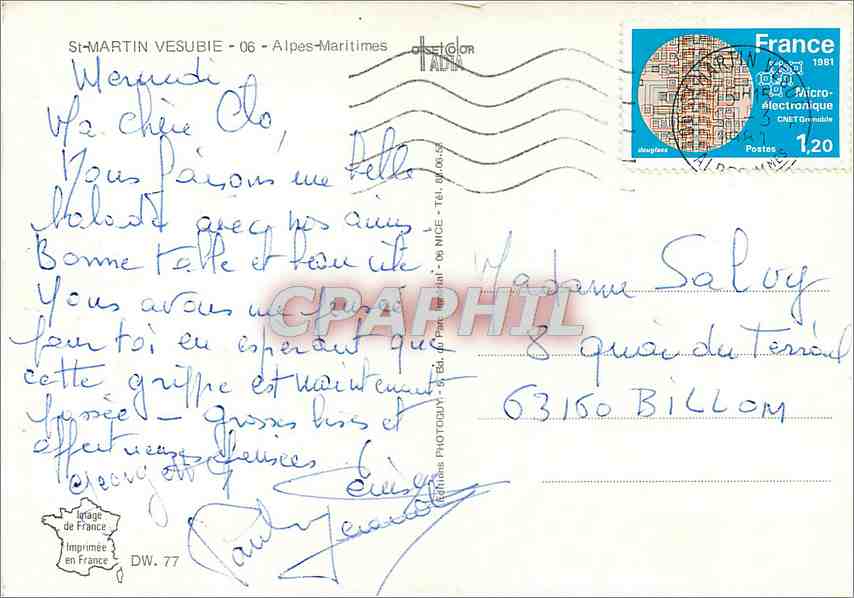 St-MARTIN VESUBIE - 06 - Alpes-Maritimes
OFFSETCOLOR
France
1981
Micro-
électronique
CNET Grenoble
Postes 1,20
Mercredi
Ma chère Clo,
Nous faisons une belle
balade avec nos amis.
Bonne table et beau site
Nous avons une pensée
pour toi en espérant que
cette grippe est maintenant
passée - grosses bises et
affectueuses pensées
Georgette
Denise
Paul
Madame Salvy
8 quai du Terrail
63160 BILLOM
Editions PHOTOGUY - 5, Bd. du Parc Impérial - 06 NICE - Tél.
CPAPHIL
Image
de France
Imprimée
en France
DW. 77